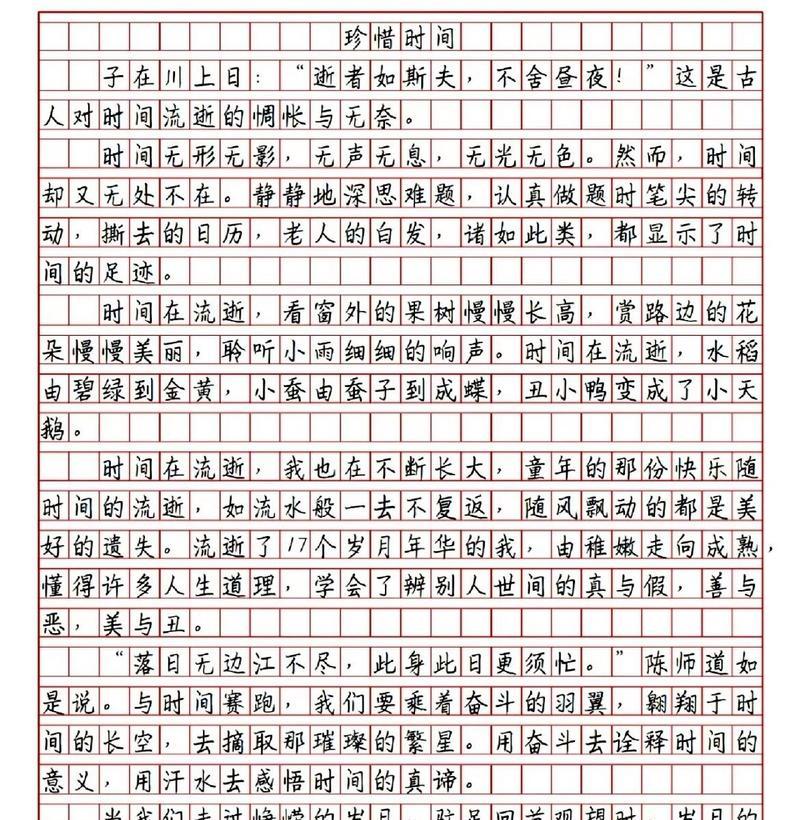 珍惜时间
子在川上日：“逝者如斯夫，不舍昼夜！”这是古
人对时间流逝的惆怅与无奈。
时间无形无影，无声无息，无光无色。然而，时间
却又无处不在。静静地深思难题，认真做题时笔尖的转
动，撕去的日历，老人的白发，诸如此类，都显示了时
间的足迹。
时间在流逝，看窗外的果树慢慢长高，赏路边的花
朵慢慢美丽，聆听小雨细细的响声。时间在流逝，水稻
由碧绿到金黄，小蚕由蚕子到成蝶，丑小鸭变成了小天
鹅。
时间在流逝，我也在不断长大，童年的那份快乐随
时间的流逝，如流水般一去不复返，随风飘动的都是美
好的遗失。流逝了17个岁月年华的我，由稚嫩走向成熟，
懂得许多人生道理，学会了辨别人世间的真与假，善与
恶，美与丑。
“落日无边江不尽，此身此日更须忙。”陈师道如
是说。与时间赛跑，我们要乘着奋斗的羽翼，翱翔于时
间的长空，去摘取那璀璨的繁星。用奋斗去诠释时间的
意义，用汗水去感悟时间的真谛。
当我们走过峥嵘的岁月，驻足回首观望时，岁月的